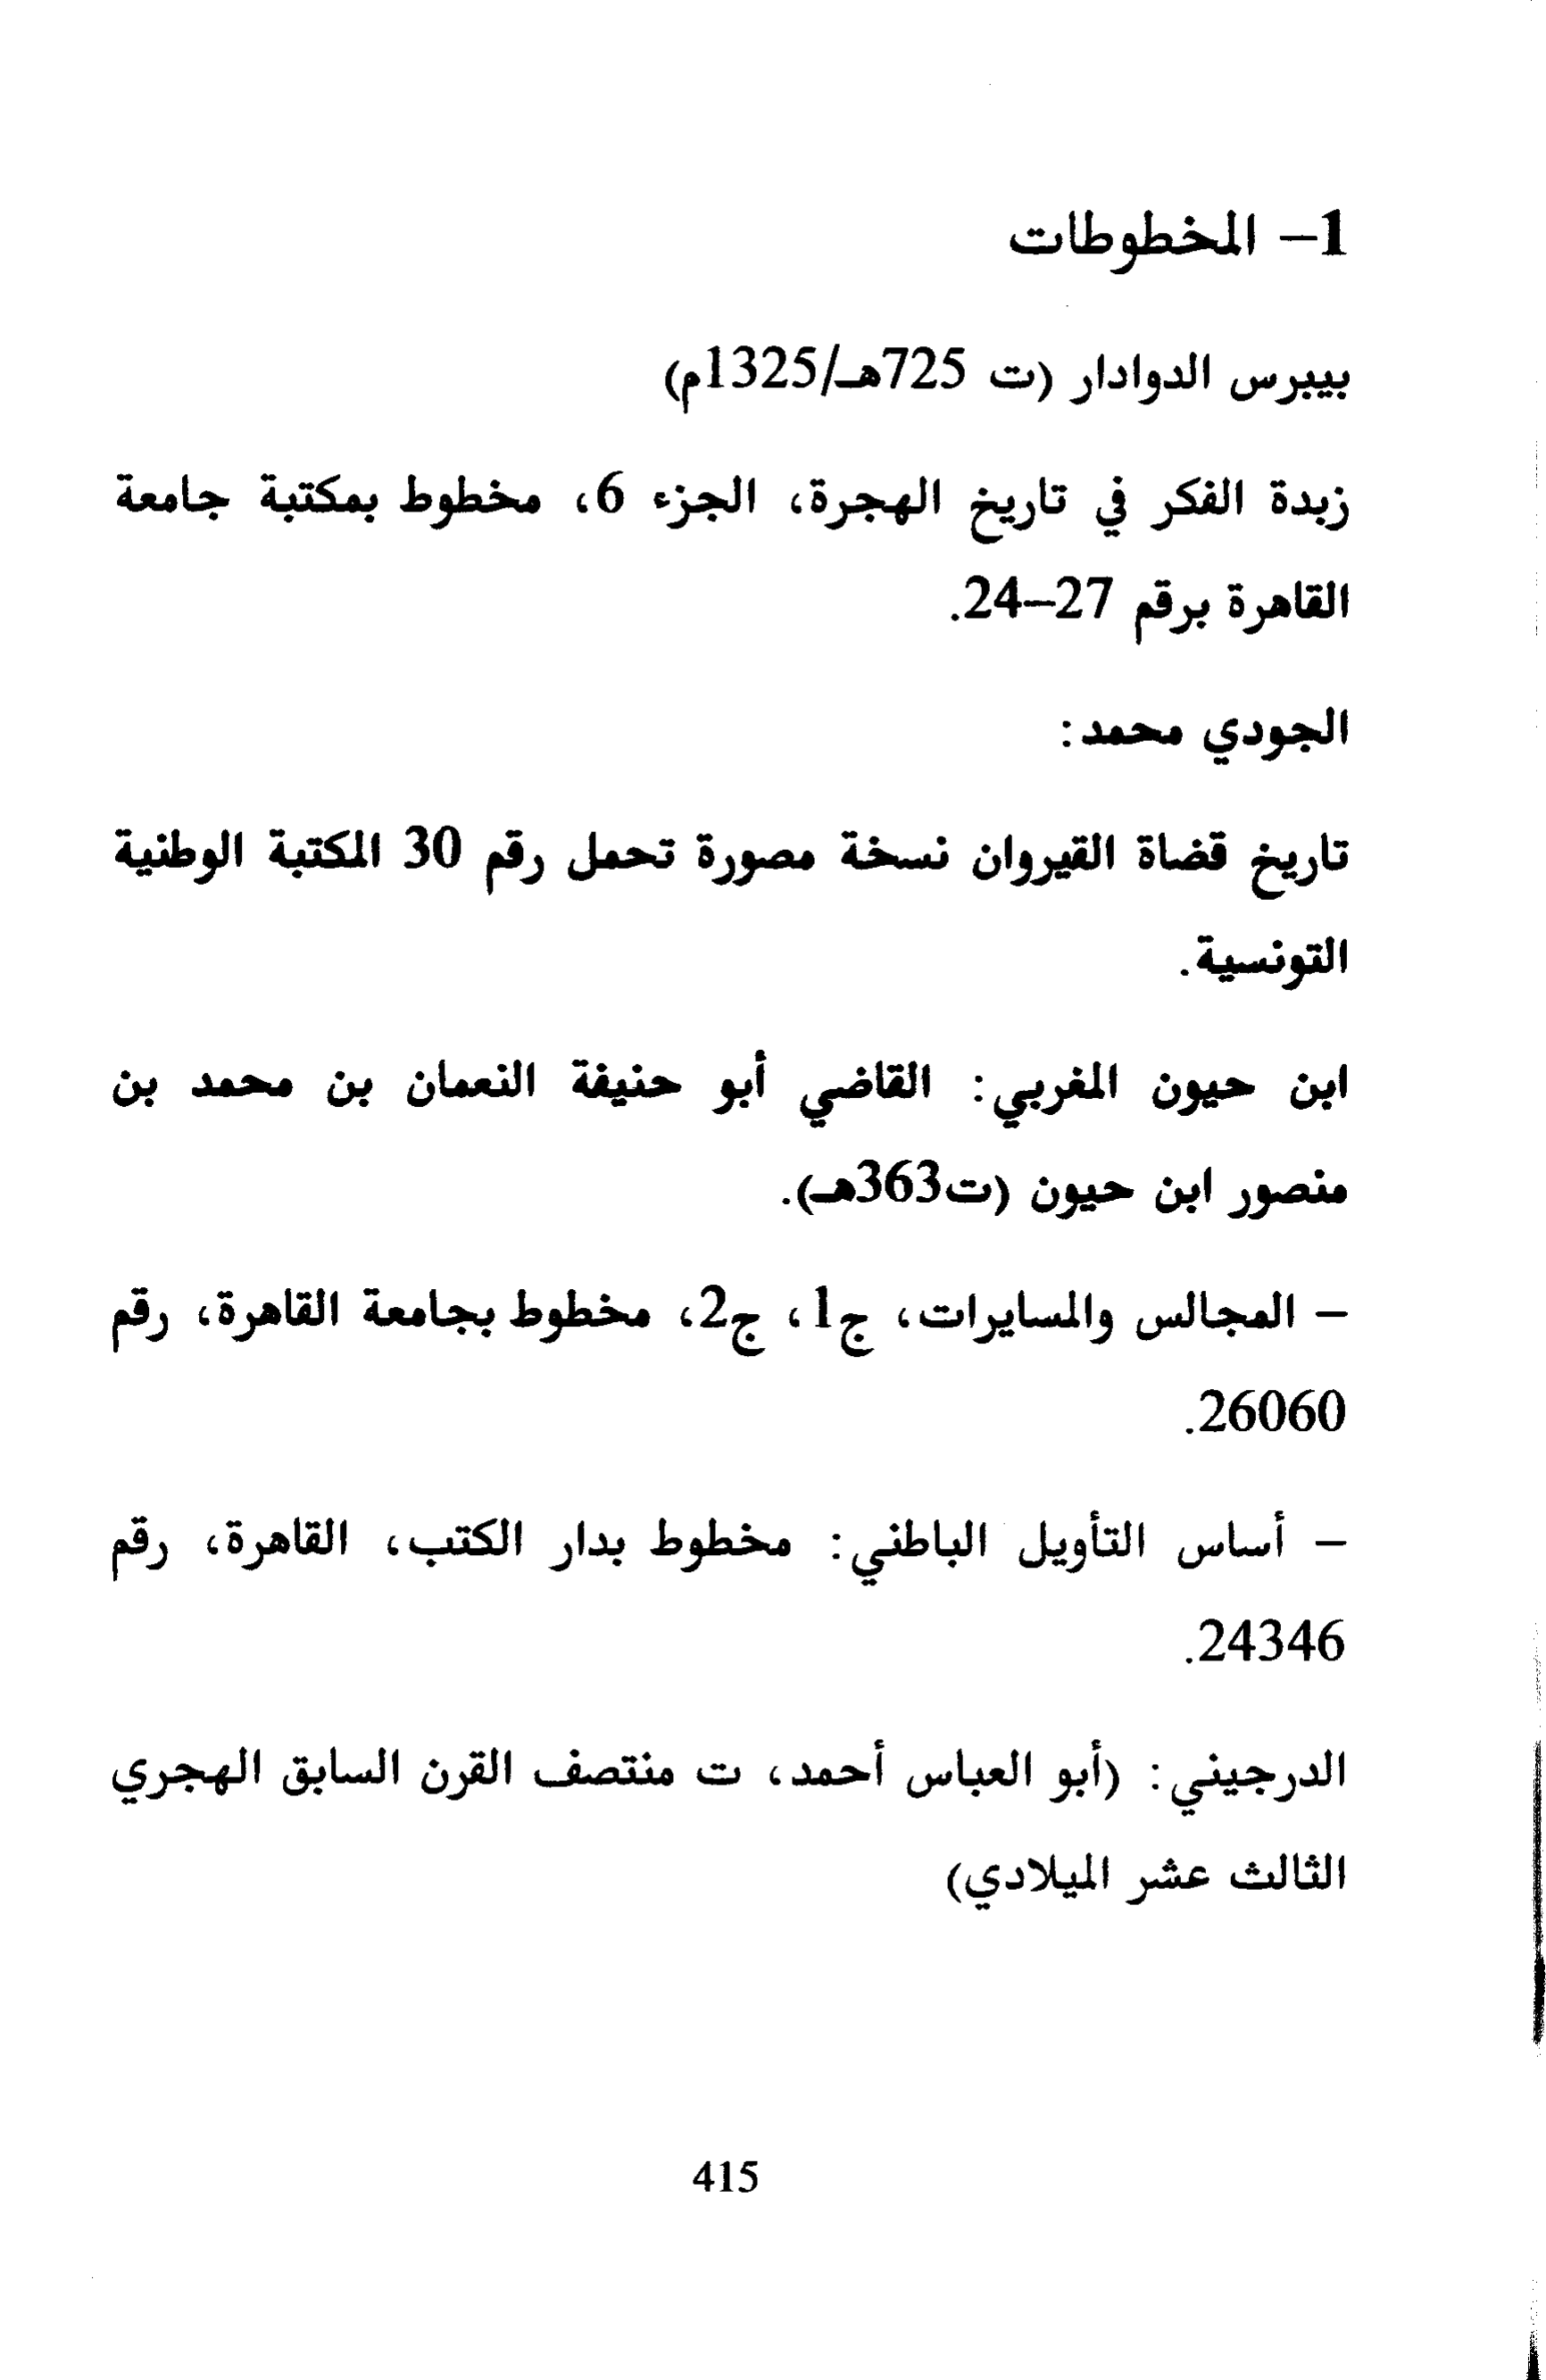 1- المخطوطات
بيبرس الدوادار (ت 725هـ/1325م)
زبدة الفكر في تاريخ الهجرة، الجزء 6، مخطوط بمكتبة جامعة
القاهرة برقم 27-24.
الجودي محمد:
تاريخ قضاة القيروان نسخة مصورة تحمل رقم 30 المكتبة الوطنية
التونسية.
ابن حيون المغربي: القاضي أبو حنيفة النعمان بن محمد بن
منصور ابن حيون (ت363هـ).
- المجالس والمسايرات، ج1، ج2، مخطوط بجامعة القاهرة، رقم
26060.
- أساس التأويل الباطني: مخطوط بدار الكتب، القاهرة، رقم
24346.
الدرجيني: (أبو العباس أحمد، ت منتصف القرن السابق الهجري
الثالث عشر الميلادي)
415